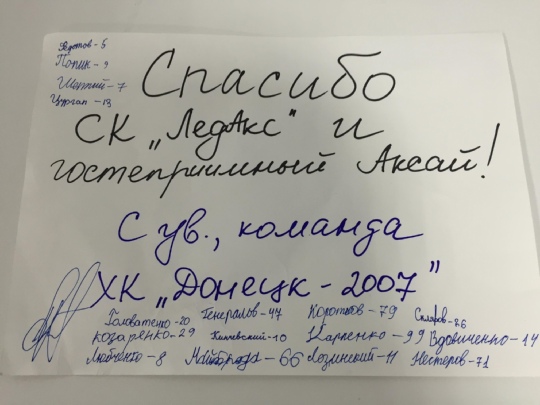 Федотов - 5
Попик - 9
Шептий - 7
Цургал - 13
Спасибо
СК „ЛедАкс" и
гостеприимный Аксай!
С ув., команда
ХК „Донецк - 2007"
Головатенко - 20 Генералов - 47 Коротков - 79 Скляров - 26
Козаренко - 29 Кипчевский - 10 Карпенко - 99 Вдовиченко - 14
Любченко - 8 Майборода - 66 Лозинский - 11 Нестеров - 71